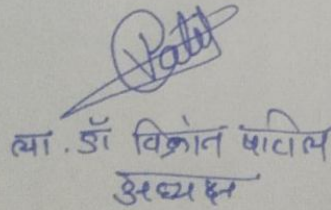 Patil
ला. डॉ विक्रांत पाटील
अध्यक्ष